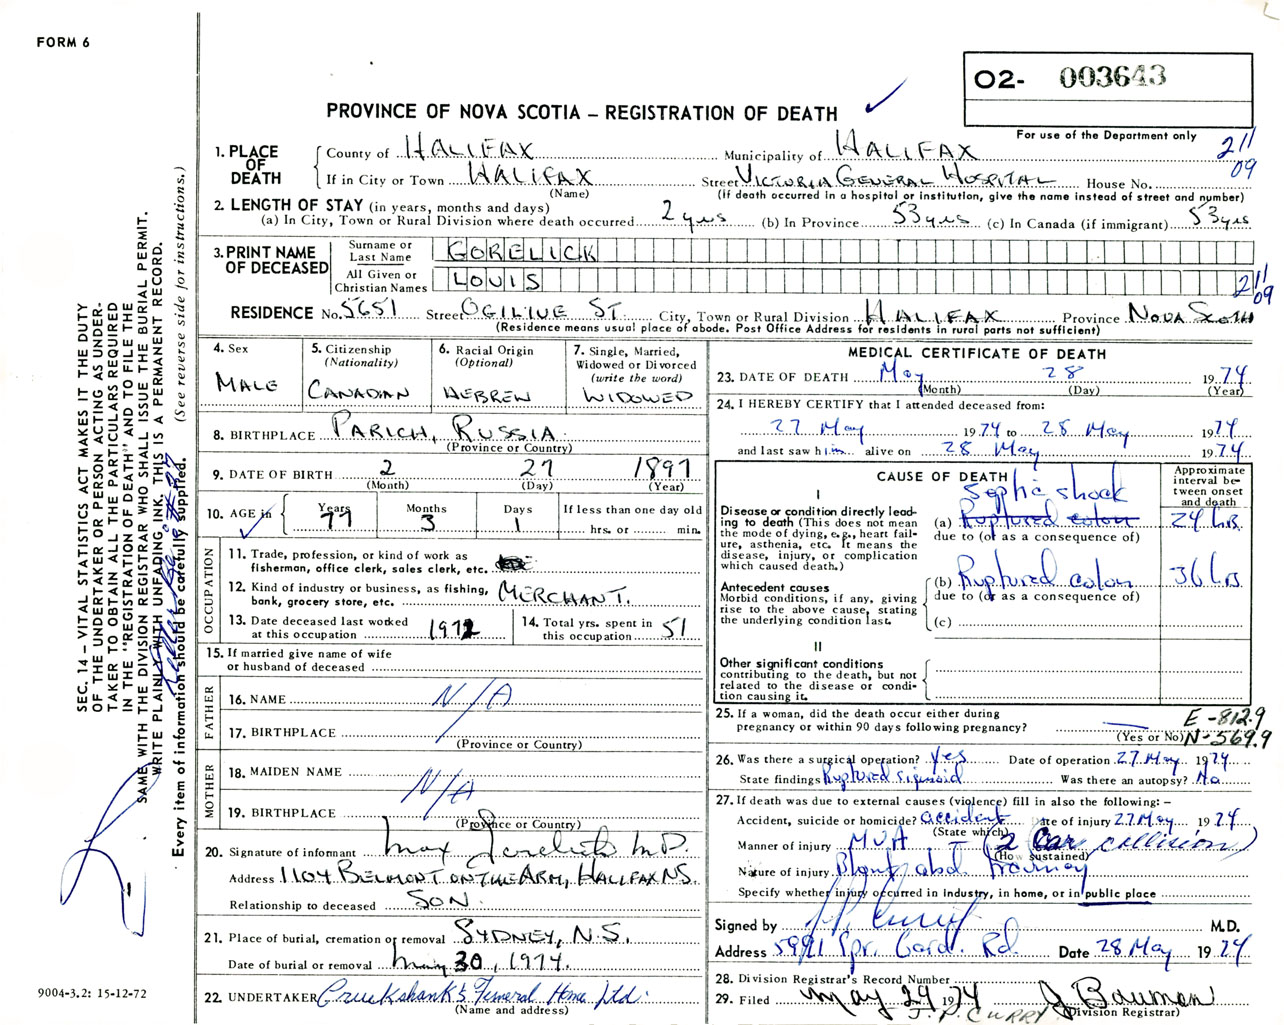 FORM 6
O2- 003643
PROVINCE OF NOVA SCOTIA – REGISTRATION OF DEATH
For use of the Department only
211
09
1. PLACE OF DEATH
County of HALIFAX Municipality of HALIFAX
If in City or Town HALIFAX Street VICTORIA GENERAL HOSPITAL House No.
(Name) (If death occurred in a hospital or institution, give the name instead of street and number)
2. LENGTH OF STAY (in years, months and days)
(a) In City, Town or Rural Division where death occurred 2 yrs (b) In Province 53 yrs (c) In Canada (if immigrant) 53 yrs
3. PRINT NAME OF DECEASED
Surname or Last Name GORELICK
All Given or Christian Names LOUIS
211
09
RESIDENCE No. 5651 Street OGILVIE ST. City, Town or Rural Division HALIFAX Province NOVA SCOTIA
(Residence means usual place of abode. Post Office Address for residents in rural parts not sufficient)
4. Sex
MALE
5. Citizenship
(Nationality)
CANADIAN
6. Racial Origin
(Optional)
HEBREW
7. Single, Married,
Widowed or Divorced
(write the word)
WIDOWED
8. BIRTHPLACE PARICH, RUSSIA
(Province or Country)
9. DATE OF BIRTH 2 27 1897
(Month) (Day) (Year)
10. AGE in
Years Months Days If less than one day old
77 3 1 hrs. or min.
OCCUPATION
11. Trade, profession, or kind of work as
fisherman, office clerk, sales clerk, etc.
12. Kind of industry or business, as fishing,
bank, grocery store, etc. MERCHANT.
13. Date deceased last worked
at this occupation 1972
14. Total yrs. spent in
this occupation 51
15. If married give name of wife
or husband of deceased
FATHER
16. NAME N/A
17. BIRTHPLACE
(Province or Country)
MOTHER
18. MAIDEN NAME N/A
19. BIRTHPLACE
(Province or Country)
20. Signature of informant Max Gorelick M.D.
Address 1104 BELMONT ON THE ARM, HALIFAX N.S.
Relationship to deceased SON.
21. Place of burial, cremation or removal SYDNEY, N.S.
Date of burial or removal May 30, 1974.
22. UNDERTAKER Cruikshank's Funeral Home Ltd.
(Name and address)
MEDICAL CERTIFICATE OF DEATH
23. DATE OF DEATH May 28 1974
(Month) (Day) (Year)
24. I HEREBY CERTIFY that I attended deceased from:
27 May 1974 to 28 May 1974
and last saw him alive on 28 May 1974
CAUSE OF DEATH
Approximate interval between onset and death
I
Disease or condition directly leading to death (This does not mean the mode of dying, e.g., heart failure, asthenia, etc. It means the disease, injury, or complication which caused death.)
Septic shock
(a) Ruptured colon 24 hrs
due to (or as a consequence of)
Antecedent causes
Morbid conditions, if any, giving rise to the above cause, stating the underlying condition last.
(b) Ruptured colon 36 hrs
due to (or as a consequence of)
(c)
II
Other significant conditions
contributing to the death, but not related to the disease or condition causing it.
25. If a woman, did the death occur either during
pregnancy or within 90 days following pregnancy?
(Yes or No)
E-812.9
N-569.9
26. Was there a surgical operation? Yes Date of operation 27 May 1974
State findings Ruptured sigmoid Was there an autopsy? No
27. If death was due to external causes (violence) fill in also the following: –
Accident, suicide or homicide? accident Date of injury 27 May 1974
(State which)
Manner of injury MVA – (2 car collision)
(How sustained)
Nature of injury Blunt abd. trauma
Specify whether injury occurred in industry, in home, or in public place
Signed by M.D.
Address 5991 Spr. Gard. Rd. Date 28 May 1974
28. Division Registrar's Record Number
29. Filed May 29 1974 J Bauman
J. P. CURRY (Division Registrar)
SEC. 14 – VITAL STATISTICS ACT MAKES IT THE DUTY
OF THE UNDERTAKER OR PERSON ACTING AS UNDER-
TAKER TO OBTAIN ALL THE PARTICULARS REQUIRED
IN THE "REGISTRATION OF DEATH" AND TO FILE THE
SAME WITH THE DIVISION REGISTRAR WHO SHALL ISSUE THE BURIAL PERMIT.
WRITE PLAINLY WITH UNFADING INK. THIS IS A PERMANENT RECORD.
Every item of information should be carefully supplied. (See reverse side for instructions.)
9004-3.2: 15-12-72